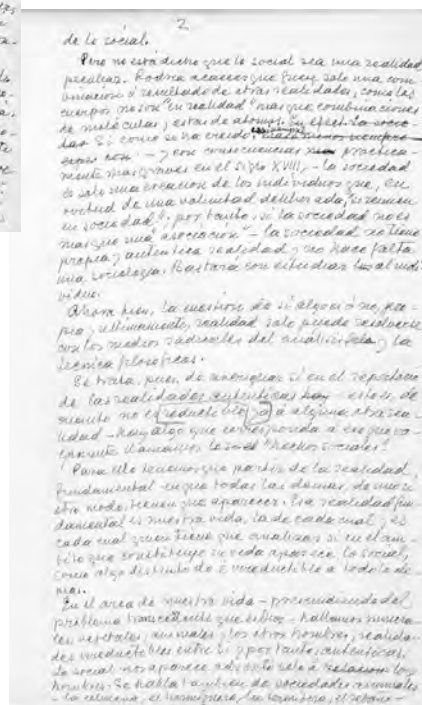 2
de lo social.
Pero no está dicho que lo social sea una realidad
peculiar. Podría acaecer que fuese solo una com-
binación o resultado de otras realidades, como los
cuerpos no son "en realidad" mas que combinaciones
de moléculas, estas de átomos. Si como se ha creído
– y con consecuencias practica-
mente mas graves en el siglo XVIII, – la sociedad
es solo una creación de los individuos que, en
virtud de una voluntad deliberada, "se reunen
en sociedad"; por tanto, si la sociedad no es
mas que una "asociación" – la sociedad no tiene
propia y auténtica realidad y no hace falta
una sociología. Bastará con estudiar al indi-
viduo.
Ahora bien, la cuestión de si algo es ó no, pro-
pia y ultimamente, realidad solo puede resolverse
con los medios radicales del análisis y la
técnica filosóficas.
Se trata, pues, de averiguar si en el repertorio
de las realidades auténticas – esto es, de
cuanto no es reductible ya a alguna otra rea-
lidad – hay algo que corresponda a eso que va-
gamente llamamos "hechos sociales".
Para ello tenemos que partir de la realidad
fundamental en que todas las demas, de uno u
otro modo, tienen que aparecer. Esa realidad fun-
damental es nuestra vida, la de cada cual y es
cada cual quien tiene que analizar si en el ám-
bito que constituye su vida aparece lo social,
como algo distinto de e irreductible a todo lo de-
mas.
En el area de nuestra vida – prescindiendo del
problema trascendente que es Dios – hallamos minera-
les, vegetales, animales y los otros hombres, realida-
des irreductibles entre sí y por tanto, auténticas.
Lo social nos aparece adscrito solo a los
hombres. Se habla tambien de sociedades animales
– la colmena, el hormiguero, la termitera, el rebaño –